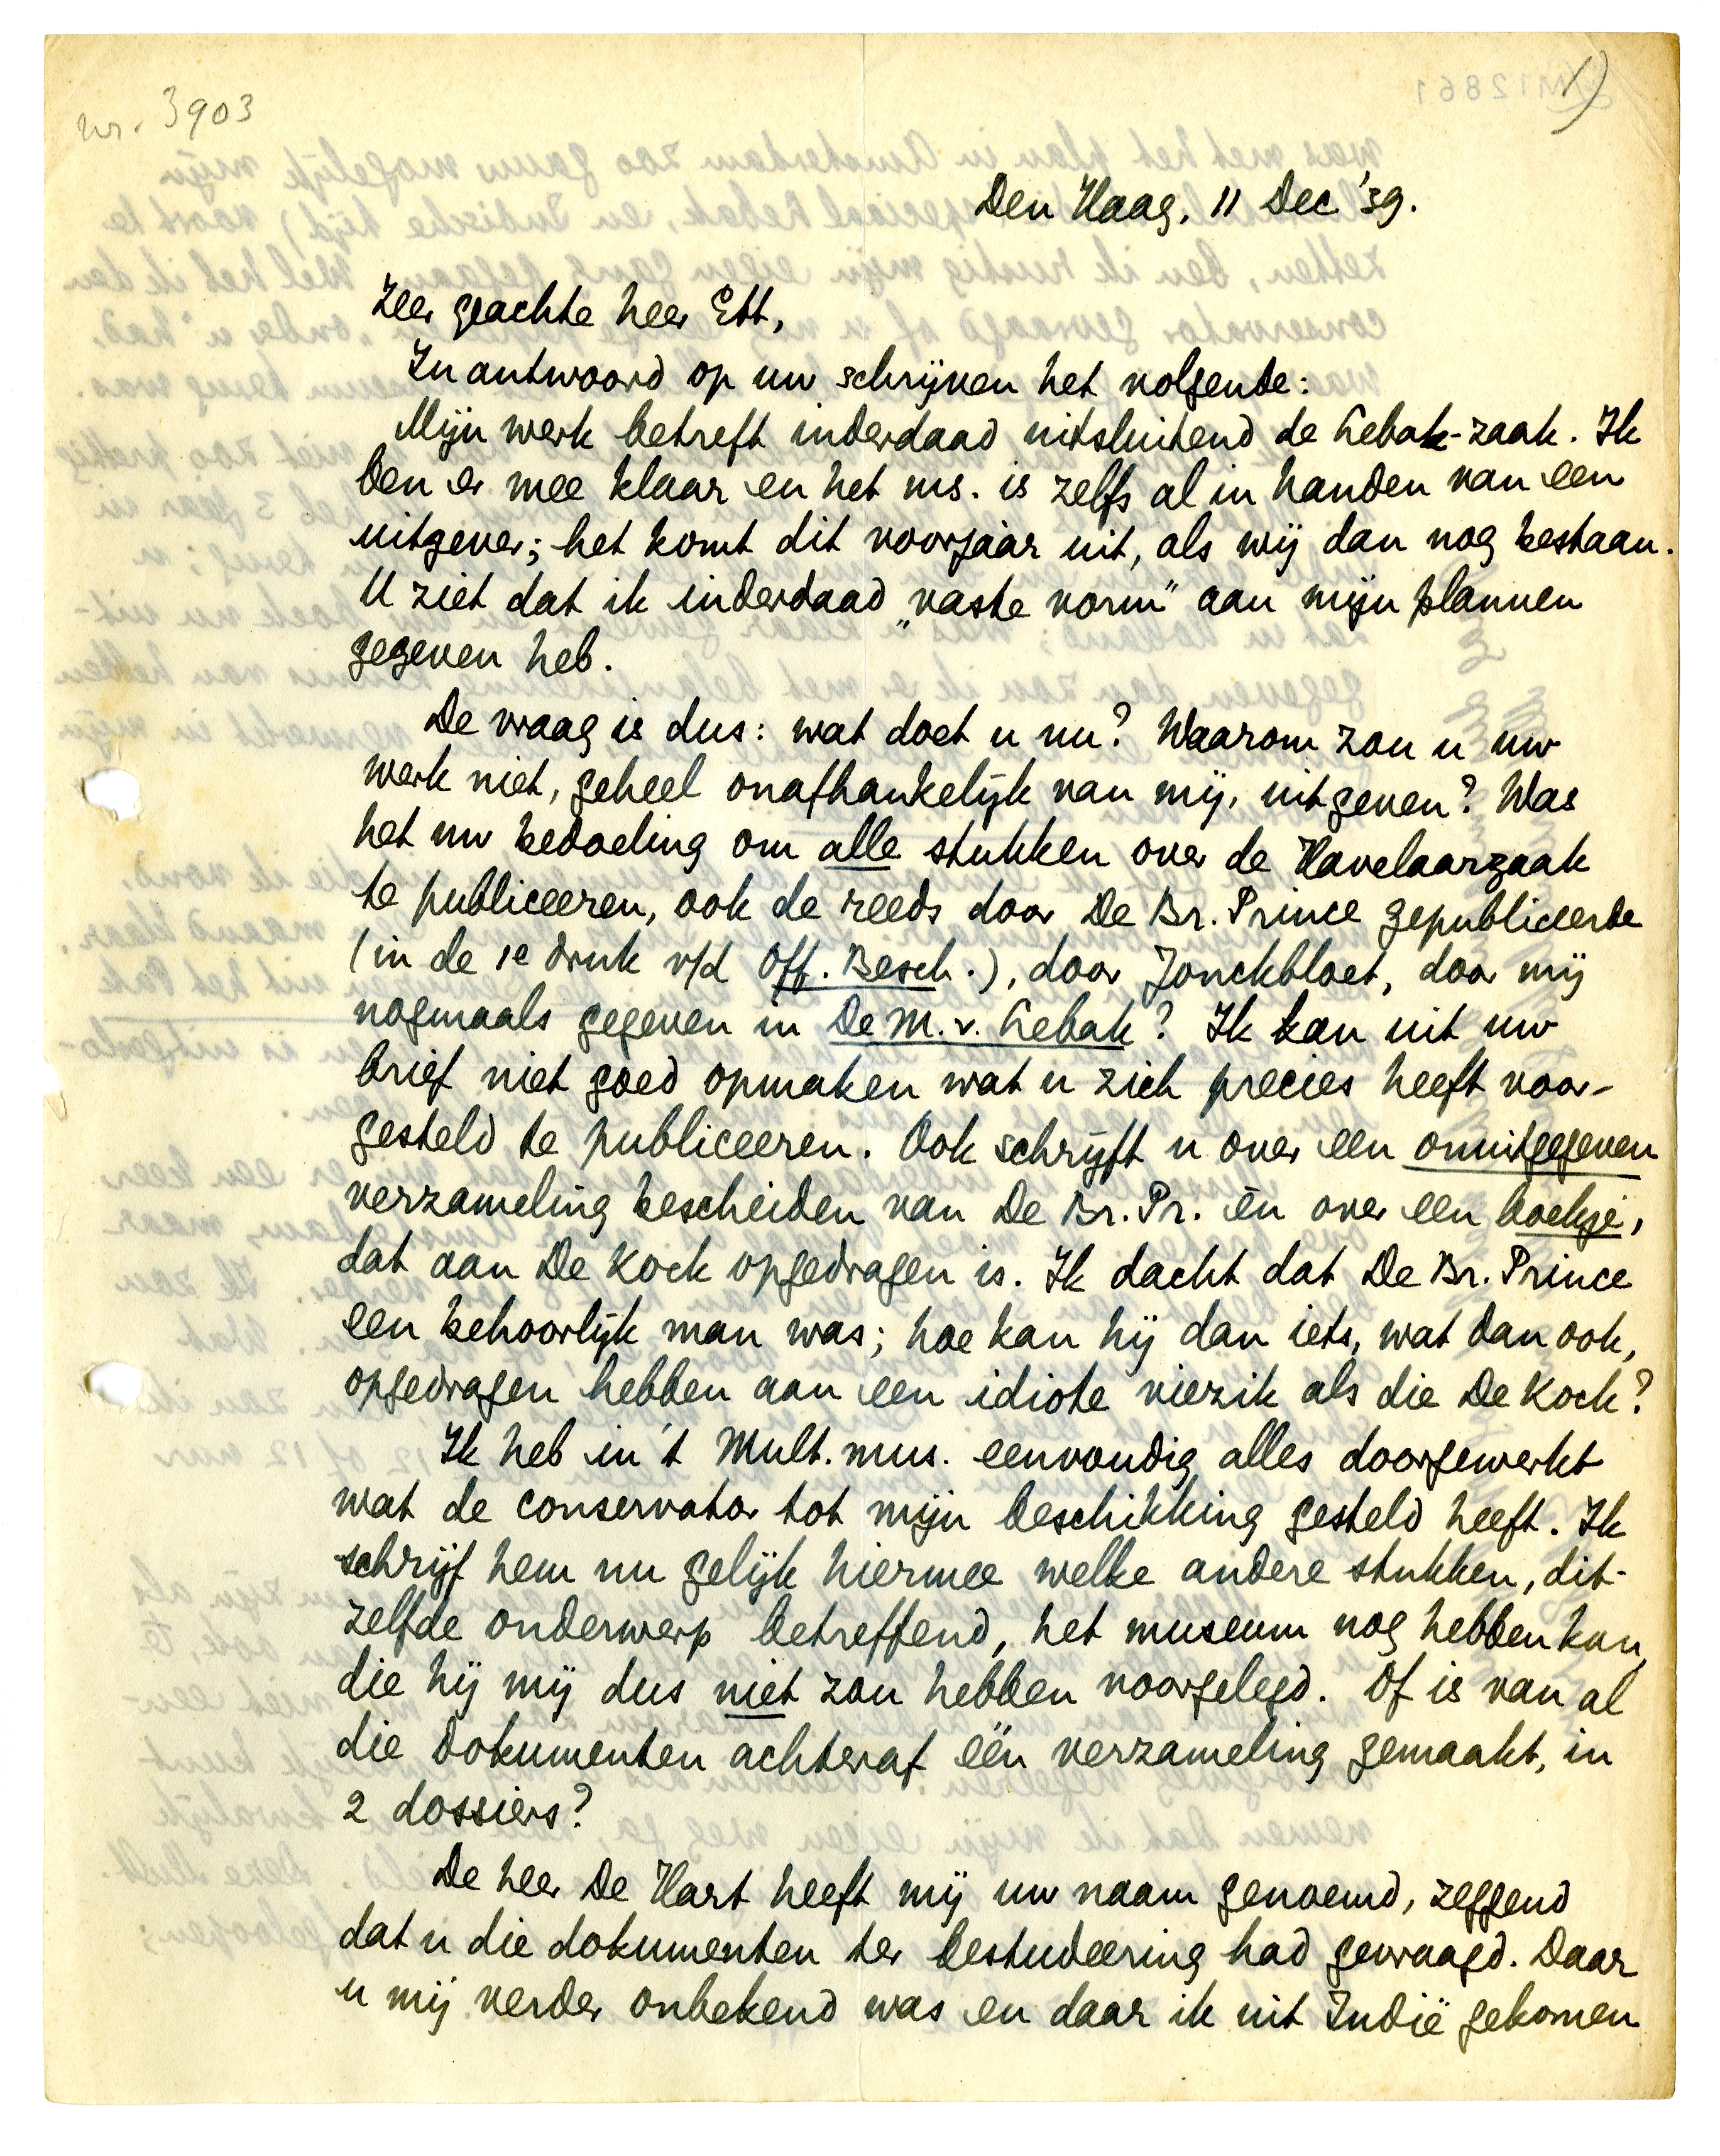 nr. 3903
1)
Den Haag, 11 Dec. '39.
Zeer geachte heer Ett,
In antwoord op uw schrijven het volgende:
Mijn werk betreft inderdaad uitsluitend de Lebak-zaak. Ik
ben er mee klaar en het ms. is zelfs al in handen van een
uitgever; het komt dit voorjaar uit, als wij dan nog bestaan.
U ziet dat ik inderdaad „vaste vorm" aan mijn plannen
gegeven heb.
De vraag is dus: wat doet u nu? Waarom zou u uw
werk niet, geheel onafhankelijk van mij, uitgeven? Was
het uw bedoeling om alle stukken over de Havelaarzaak
te publiceeren, ook de reeds door De Br. Prince gepubliceerde
(in de 1e druk v/d Off. Besch.), door Jonckbloet, door mij
nogmaals gegeven in De M. v. Lebak? Ik kan uit uw
brief niet goed opmaken wat u zich precies heeft voor-
gesteld te publiceeren. Ook schrijft u over een onuitgegeven
verzameling bescheiden van De Br. Pr. èn over een boekje,
dat aan De Kock opgedragen is. Ik dacht dat De Br. Prince
een behoorlijk man was; hoe kan hij dan iets, wat dan ook,
opgedragen hebben aan een idiote viezik als die De Kock?
Ik heb in 't Mult. mus. eenvoudig alles doorgewerkt
wat de conservator tot mijn beschikking gesteld heeft. Ik
schrijf hem nu gelijk hiermee welke andere stukken, dit-
zelfde onderwerp betreffend, het museum nog hebben kan,
die hij mij dus niet zou hebben voorgelegd. Of is van al
die dokumenten achteraf één verzameling gemaakt, in
2 dossiers?
De heer De Hart heeft mij uw naam genoemd, zeggend
dat u die dokumenten ter bestudeering had gevraagd. Daar
u mij verder onbekend was en daar ik uit Indië gekomen